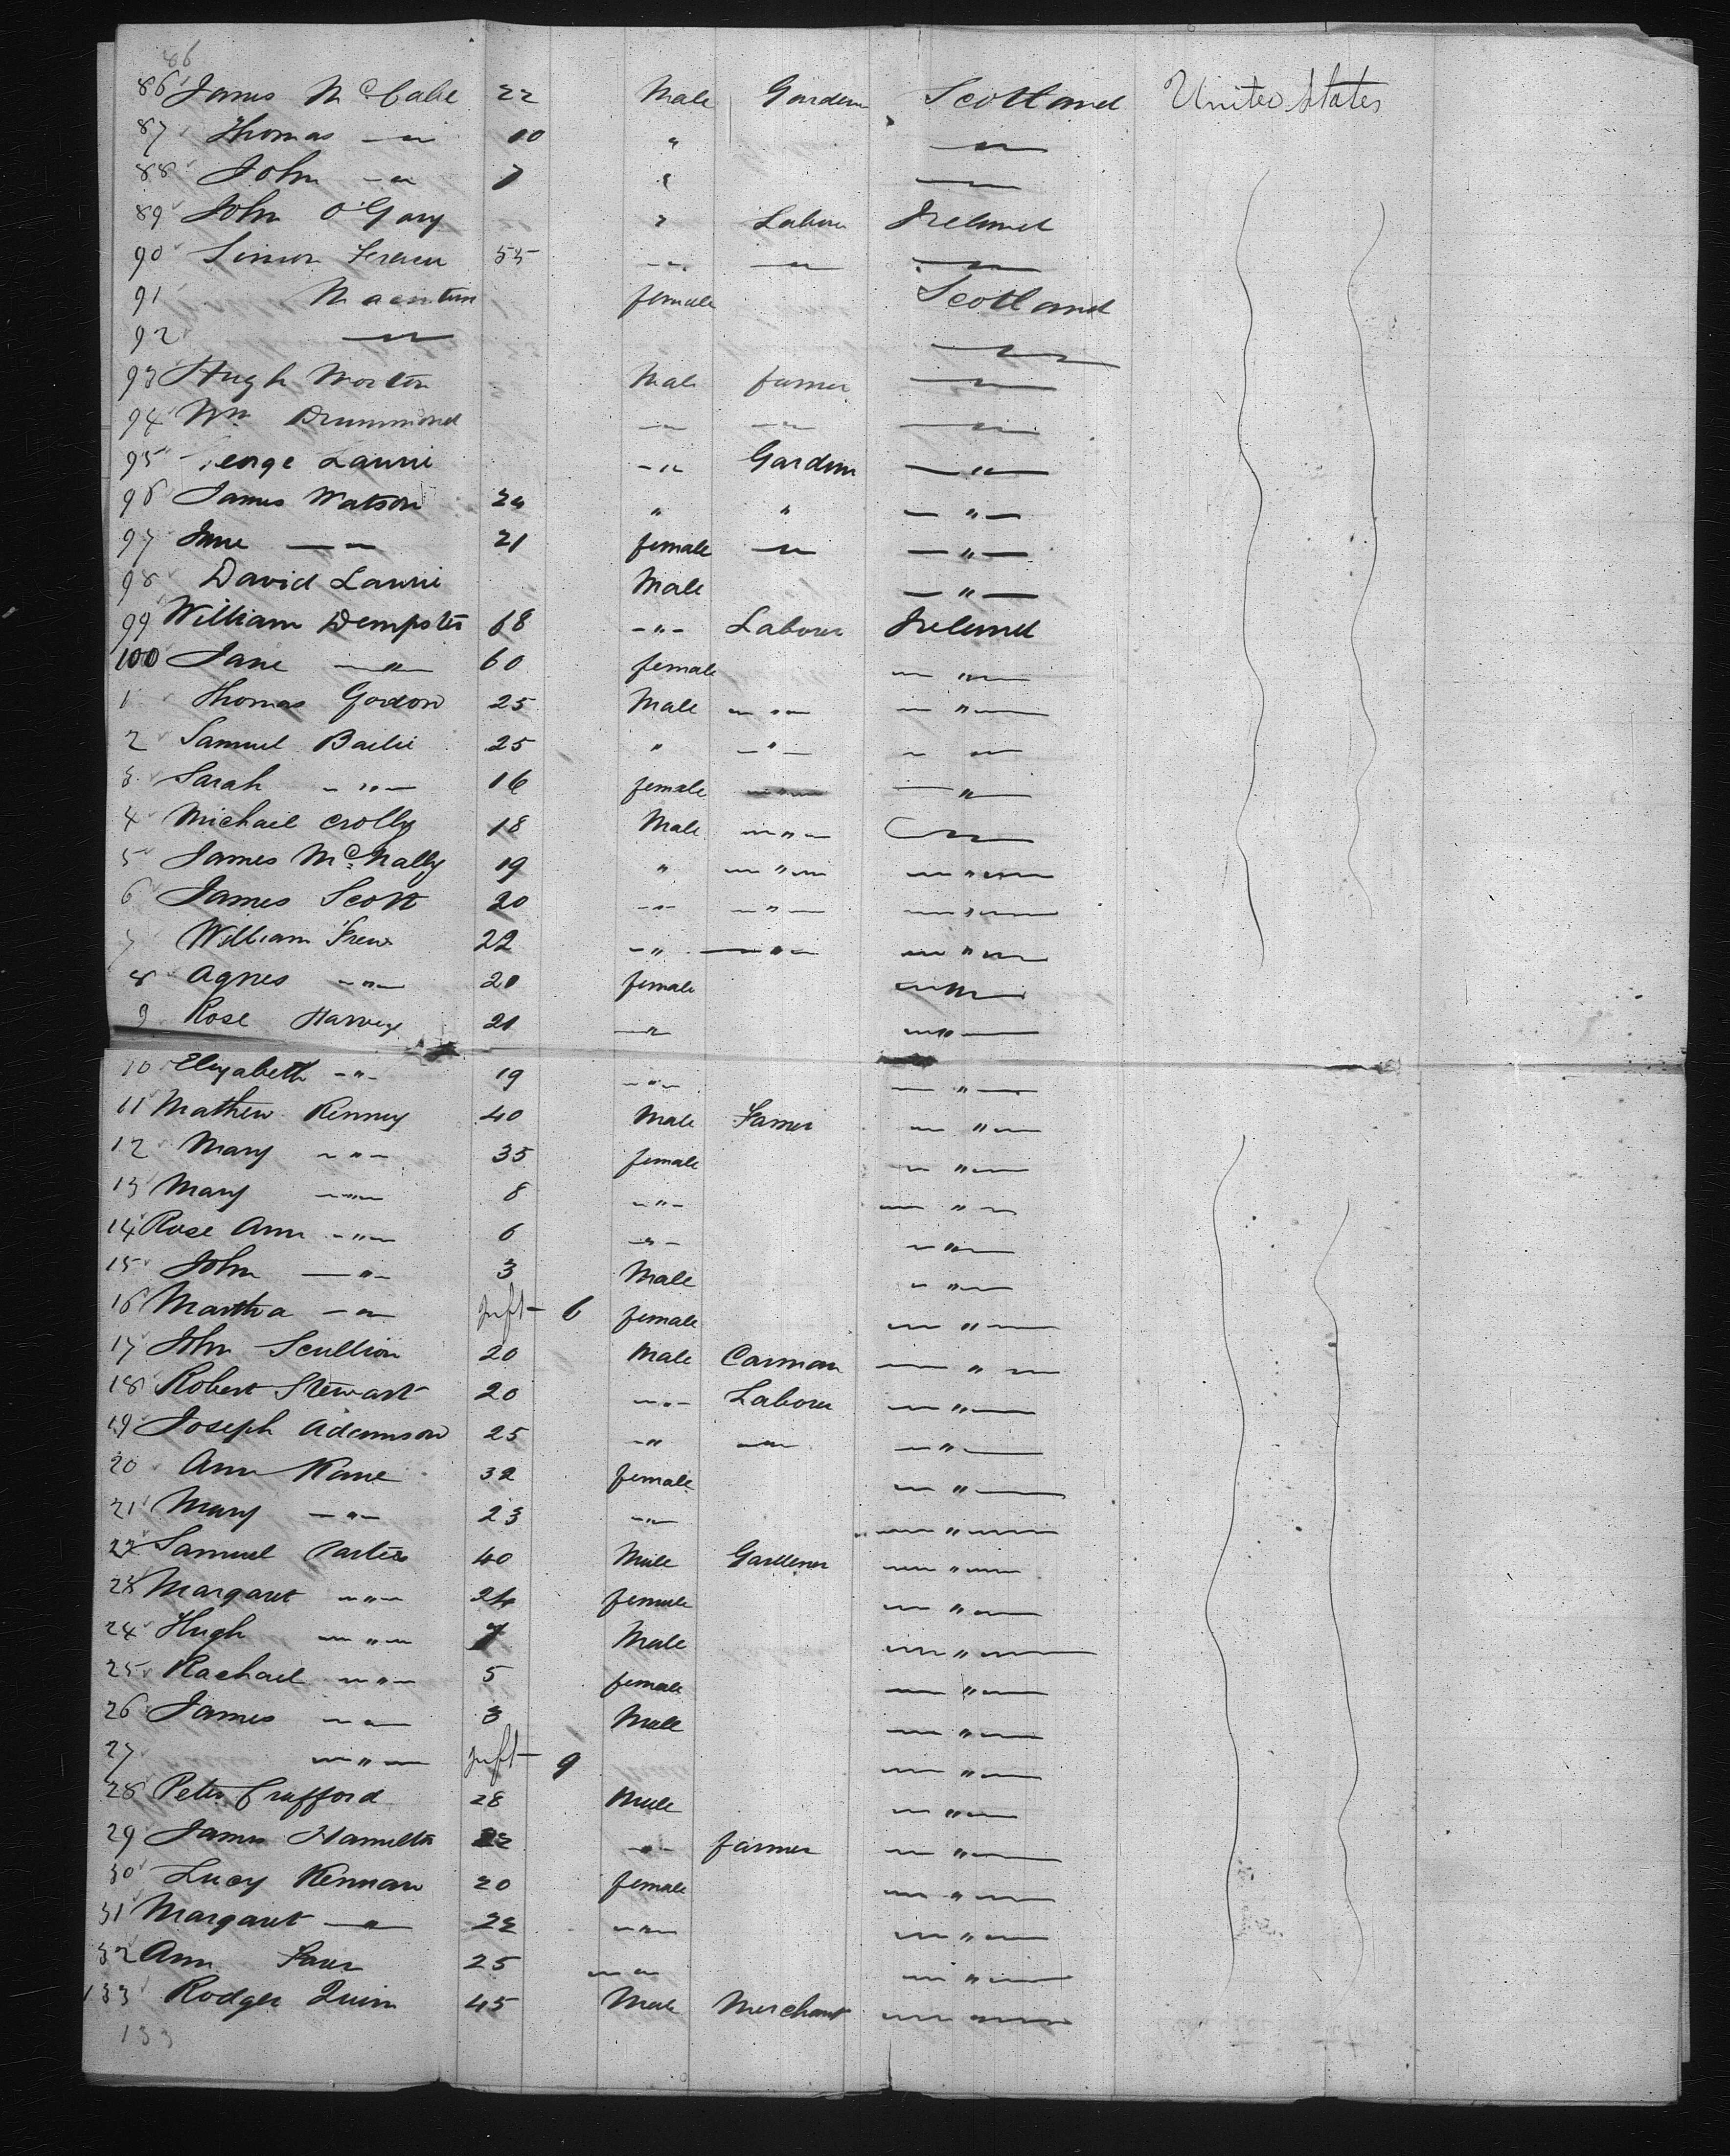 86
86 James McCabe 22 Male Garden Scotland United States
87 Thomas — " 10 " — " —
88 John — " 7 " — " —
89 John O'Gary " Labour Ireland
90 Simon 55 — " — " — — " —
91 female Scotland
92 — " — — " —
93 Hugh Morton Male farmer — " —
94 Wm Drummond — " — — " — — " —
95 George Laurie — " Gardnr — " —
96 James Watson 24 " " — " —
97 Jane — " — 21 female — " — — " —
98 David Laurie Male — " —
99 William Dempster 68 — " — Laborer Ireland
100 Jane — " — 60 female — " —
1 Thomas Gordon 25 Male — " — — " —
2 Samuel Bailie 25 " — " — — " —
3 Sarah — " — 16 female — " — — " —
4 Michael Crolly 18 Male — " — — " —
5 James McNally 19 " — " — — " —
6 James Scott 20 — " — — " — — " —
7 William Frew 22 — " — " — — " —
8 Agnes — " — 20 female — " —
9 Rose Harvey 21 — " — " —
10 Elizabeth — " — 19 — " — — " —
11 Mathew Kenney 40 Male Farmer — " —
12 Mary — " — 35 female — " —
13 Mary — " — 8 — " — — " —
14 Rose Ann — " — 6 — " — — " —
15 John — " — 3 Male — " —
16 Martha — " — Inft — 6 female — " —
17 John Scullion 20 Male Carman — " —
18 Robert Stewart 20 — " — Laborer — " —
19 Joseph Adamson 25 — " — " — — " —
20 Ann Kane 32 female — " —
21 Mary — " — 23 — " — — " —
22 Samuel 40 Male Gardener — " —
23 Margaret — " — 24 female — " —
24 Hugh — " — 7 Male — " —
25 Rachael — " — 5 female — " —
26 James — " — 3 Male — " —
27 — " — Inft — 9 — " —
28 Peter Crufford 28 Male — " —
29 James Hamilton 22 — " — farmer — " —
30 Lucy Kennan 20 female — " —
31 Margaret — " — 22 — " — — " —
32 Ann 25 — " — — " —
133 Rodger Quin 45 Male Merchant — " —
133